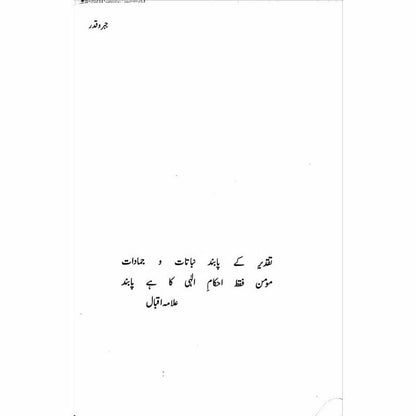 جبر و قدر
تقدیر کے پابند نباتات و جمادات
مؤمن فقط احکامِ الٰہی کا ہے پابند
علامہ اقبال